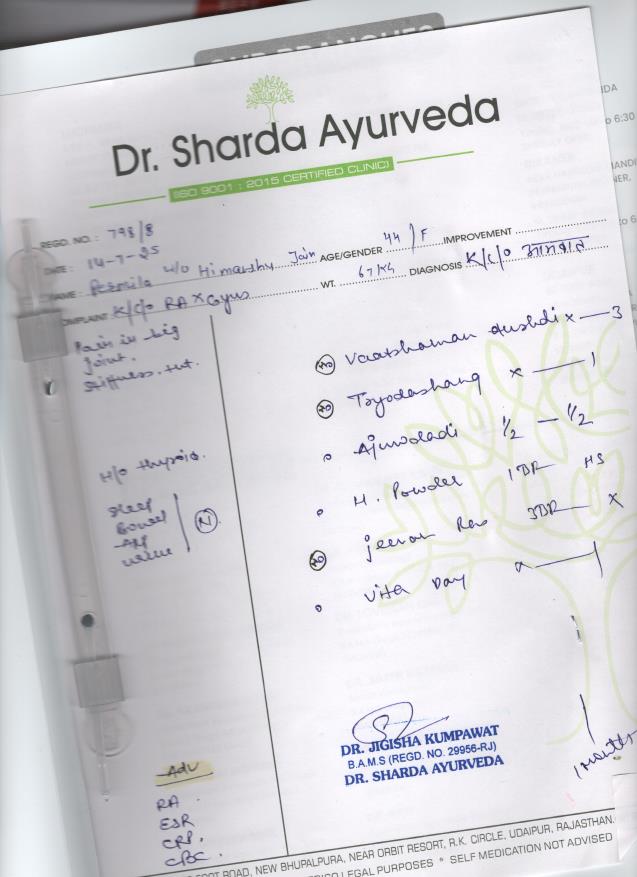 OUR BRANCHES
Dr. Sharda Ayurveda
(ISO 9001 : 2015 CERTIFIED CLINIC)
REGD. NO. : 798/8
DATE : 14-7-25
NAME : W/O Himanshu Jain AGE/GENDER 44/F IMPROVEMENT
WT. 67 kg DIAGNOSIS K/C/O आमवात
COMPLAINT K/C/O RA x 6yrs
Pain in big
joint.
Stiffness.
H/O thyroid.
Sleep
Bowel
App
urine
N
Vaatshaman x — 3
Tryodashang x — 1
Ajmodadi 1/2 — 1/2
H. Powder HS
Jeevan Ras x
Vita Day
1 month
DR. JIGISHA KUMPAWAT
B.A.M.S (REGD. NO. 29956-RJ)
DR. SHARDA AYURVEDA
Adv
RA.
ESR
CRP.
CBC.
ROAD, NEW BHUPALPURA, NEAR ORBIT RESORT, R.K. CIRCLE, UDAIPUR, RAJASTHAN.
LEGAL PURPOSES * SELF MEDICATION NOT ADVISED